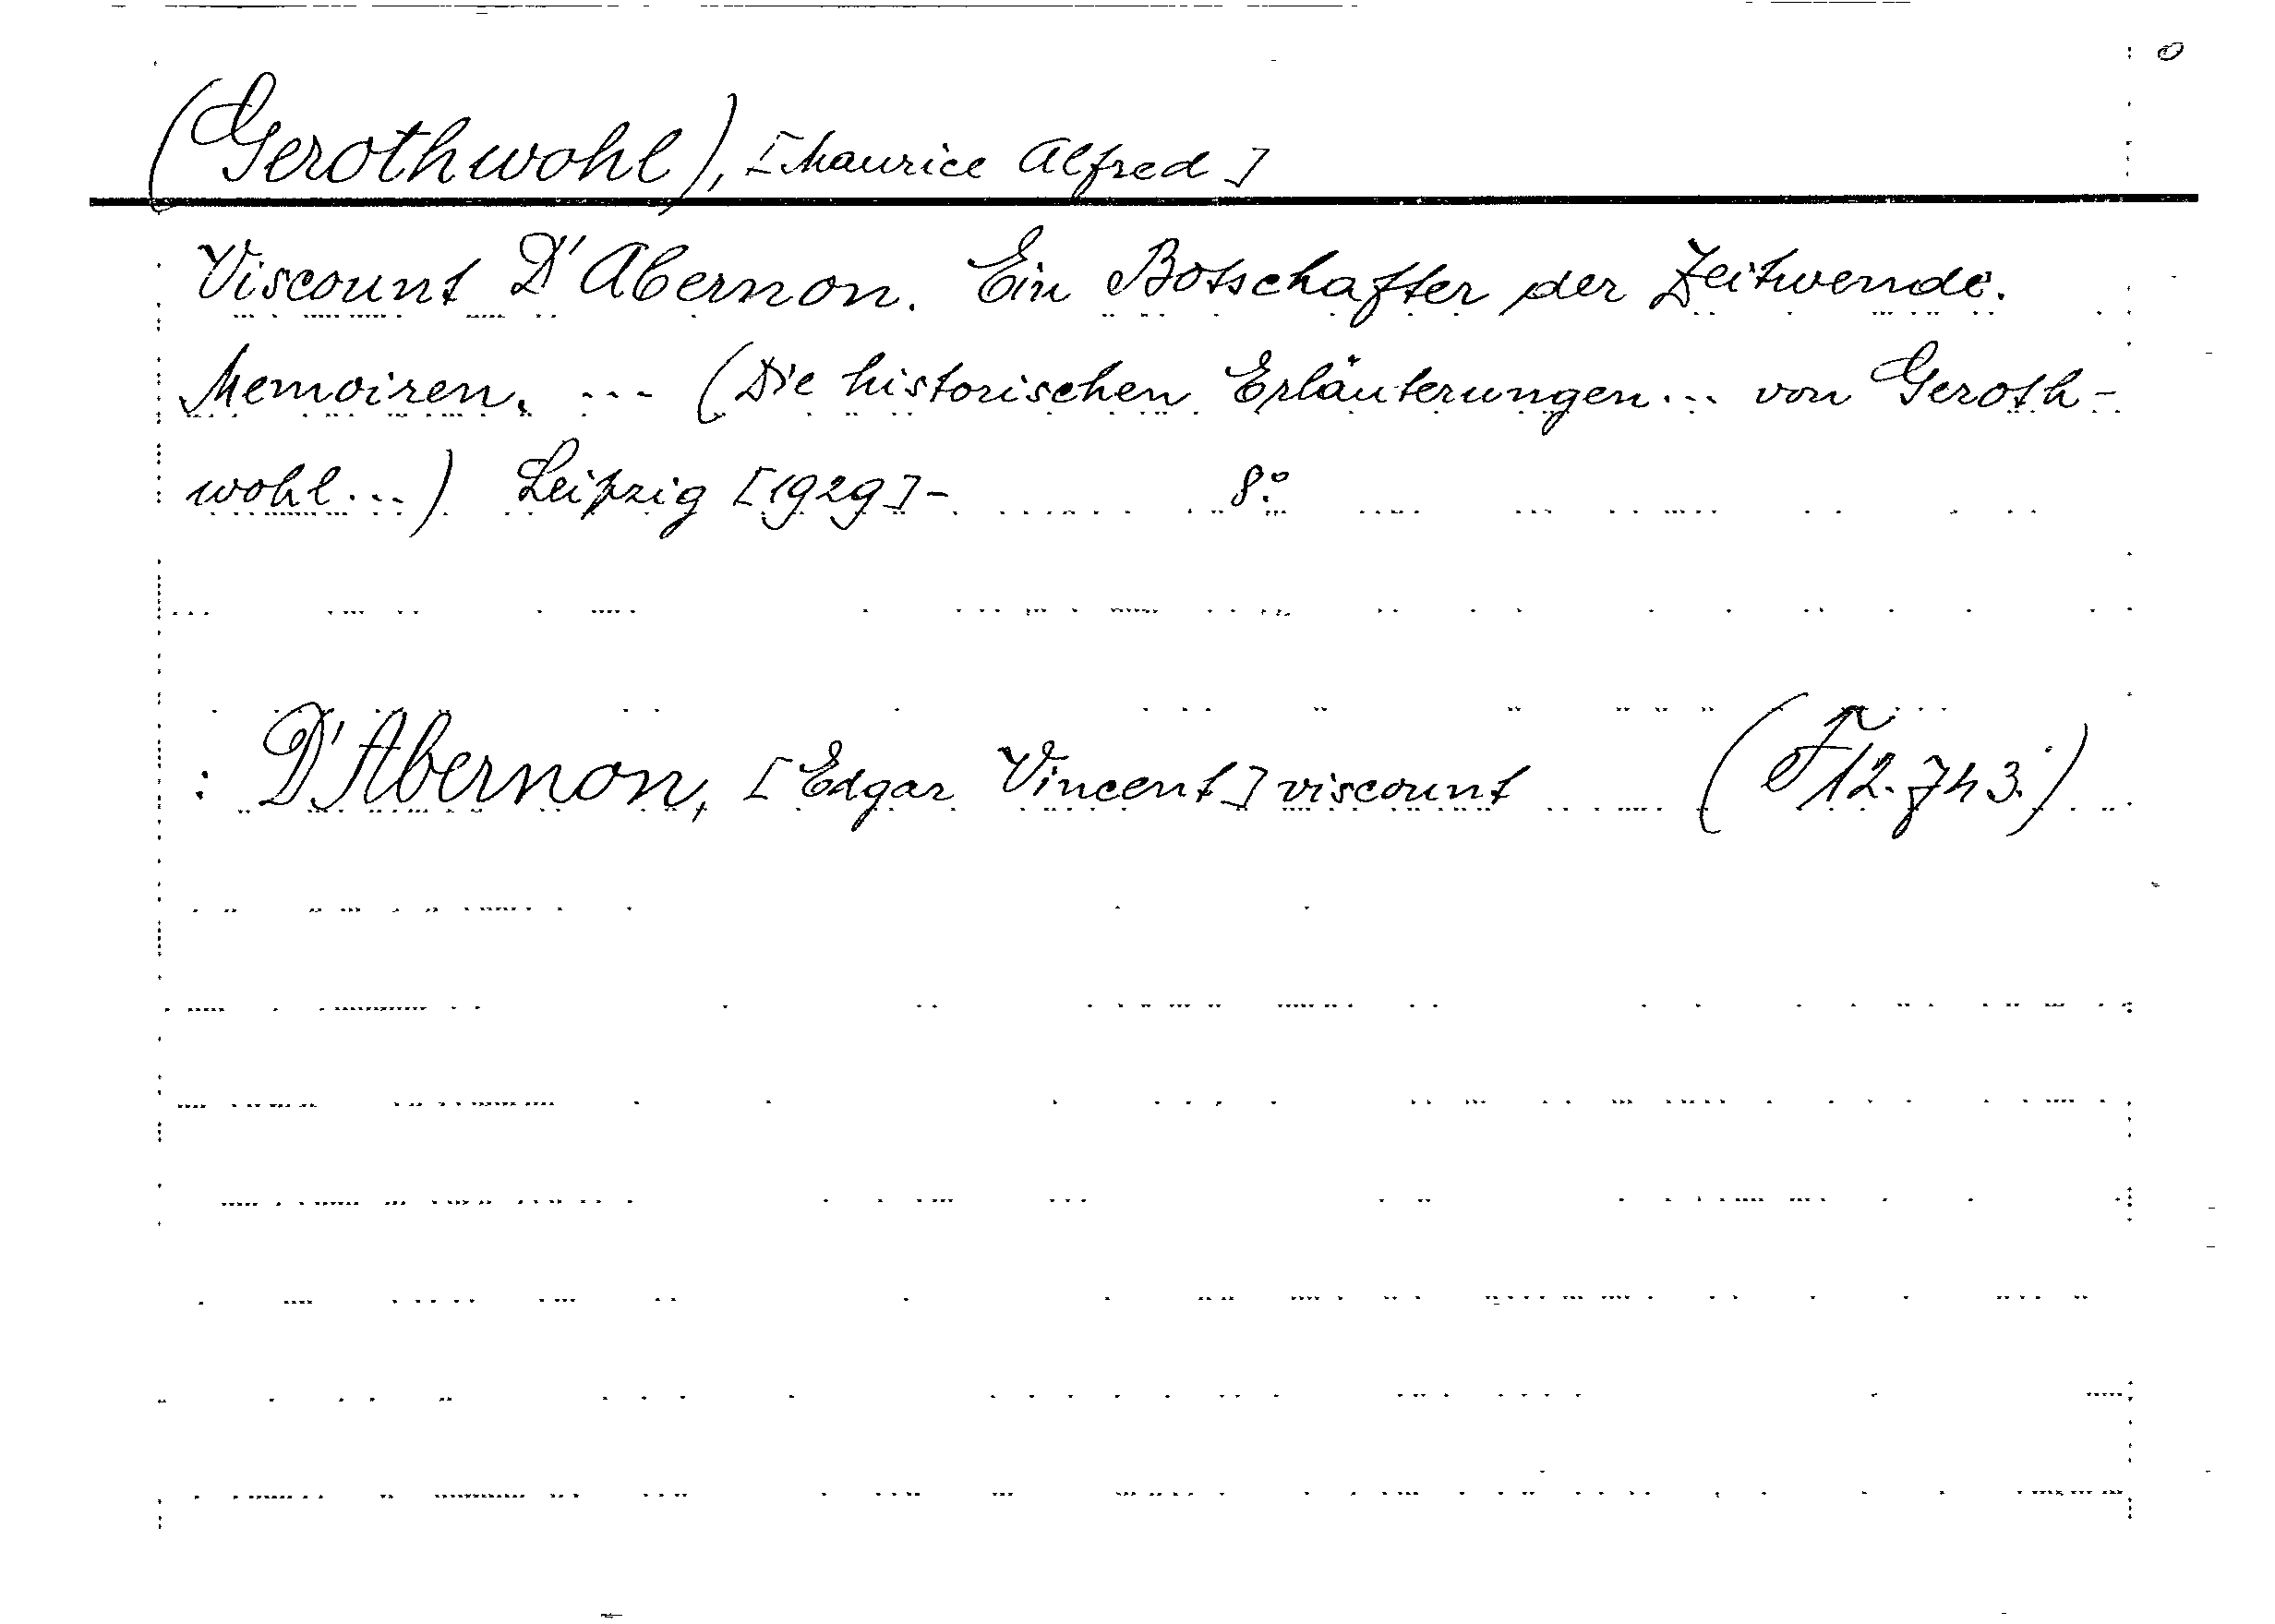 (Gerothwohl), [Maurice Alfred]
Viscount D'Abernon. Ein Botschafter der Zeitwende.
Memoiren. ... (Die historischen Erläuterungen... von Geroth-
wohl...) Leipzig [1929]- 8:o
: D'Abernon, [Edgar Vincent] viscount (F12.743.)